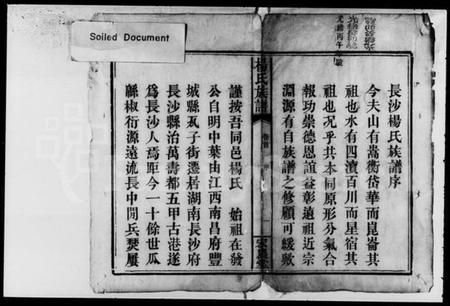 Soiled Document
長沙楊氏族譜序
今夫山有嵩衡岱華而崑崙其
祖也水有四瀆百川而星宿其
祖也况乎共本同原形分氣合
報功崇德恩誼益彰遠祖近宗
淵源有自族譜之修顧可緩歟
楊氏族譜
卷首
謹按吾同邑楊氏 始祖在發
公自明中葉由江西南昌府豐
城縣瓦子街遷居湖南長沙府
長沙縣治萬壽都五甲古港遂
為長沙人焉距今一十餘世瓜
緜椒衍源遠流長中閒兵燹屢